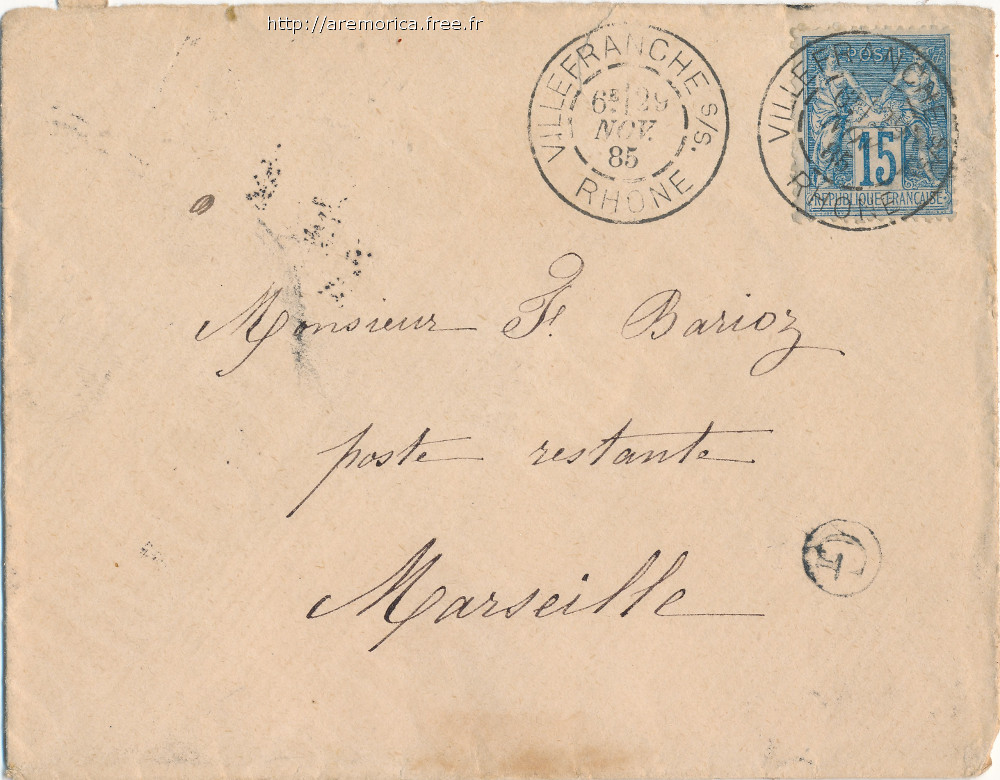 http://aremorica.free.fr
VILLEFRANCHE S/S.
6E/29
NOV.
85
RHONE
POSTES
15
REPUBLIQUE FRANCAISE
VILLEFRANCHE
RHONE
Monsieur F. Barioz
poste restante
Marseille